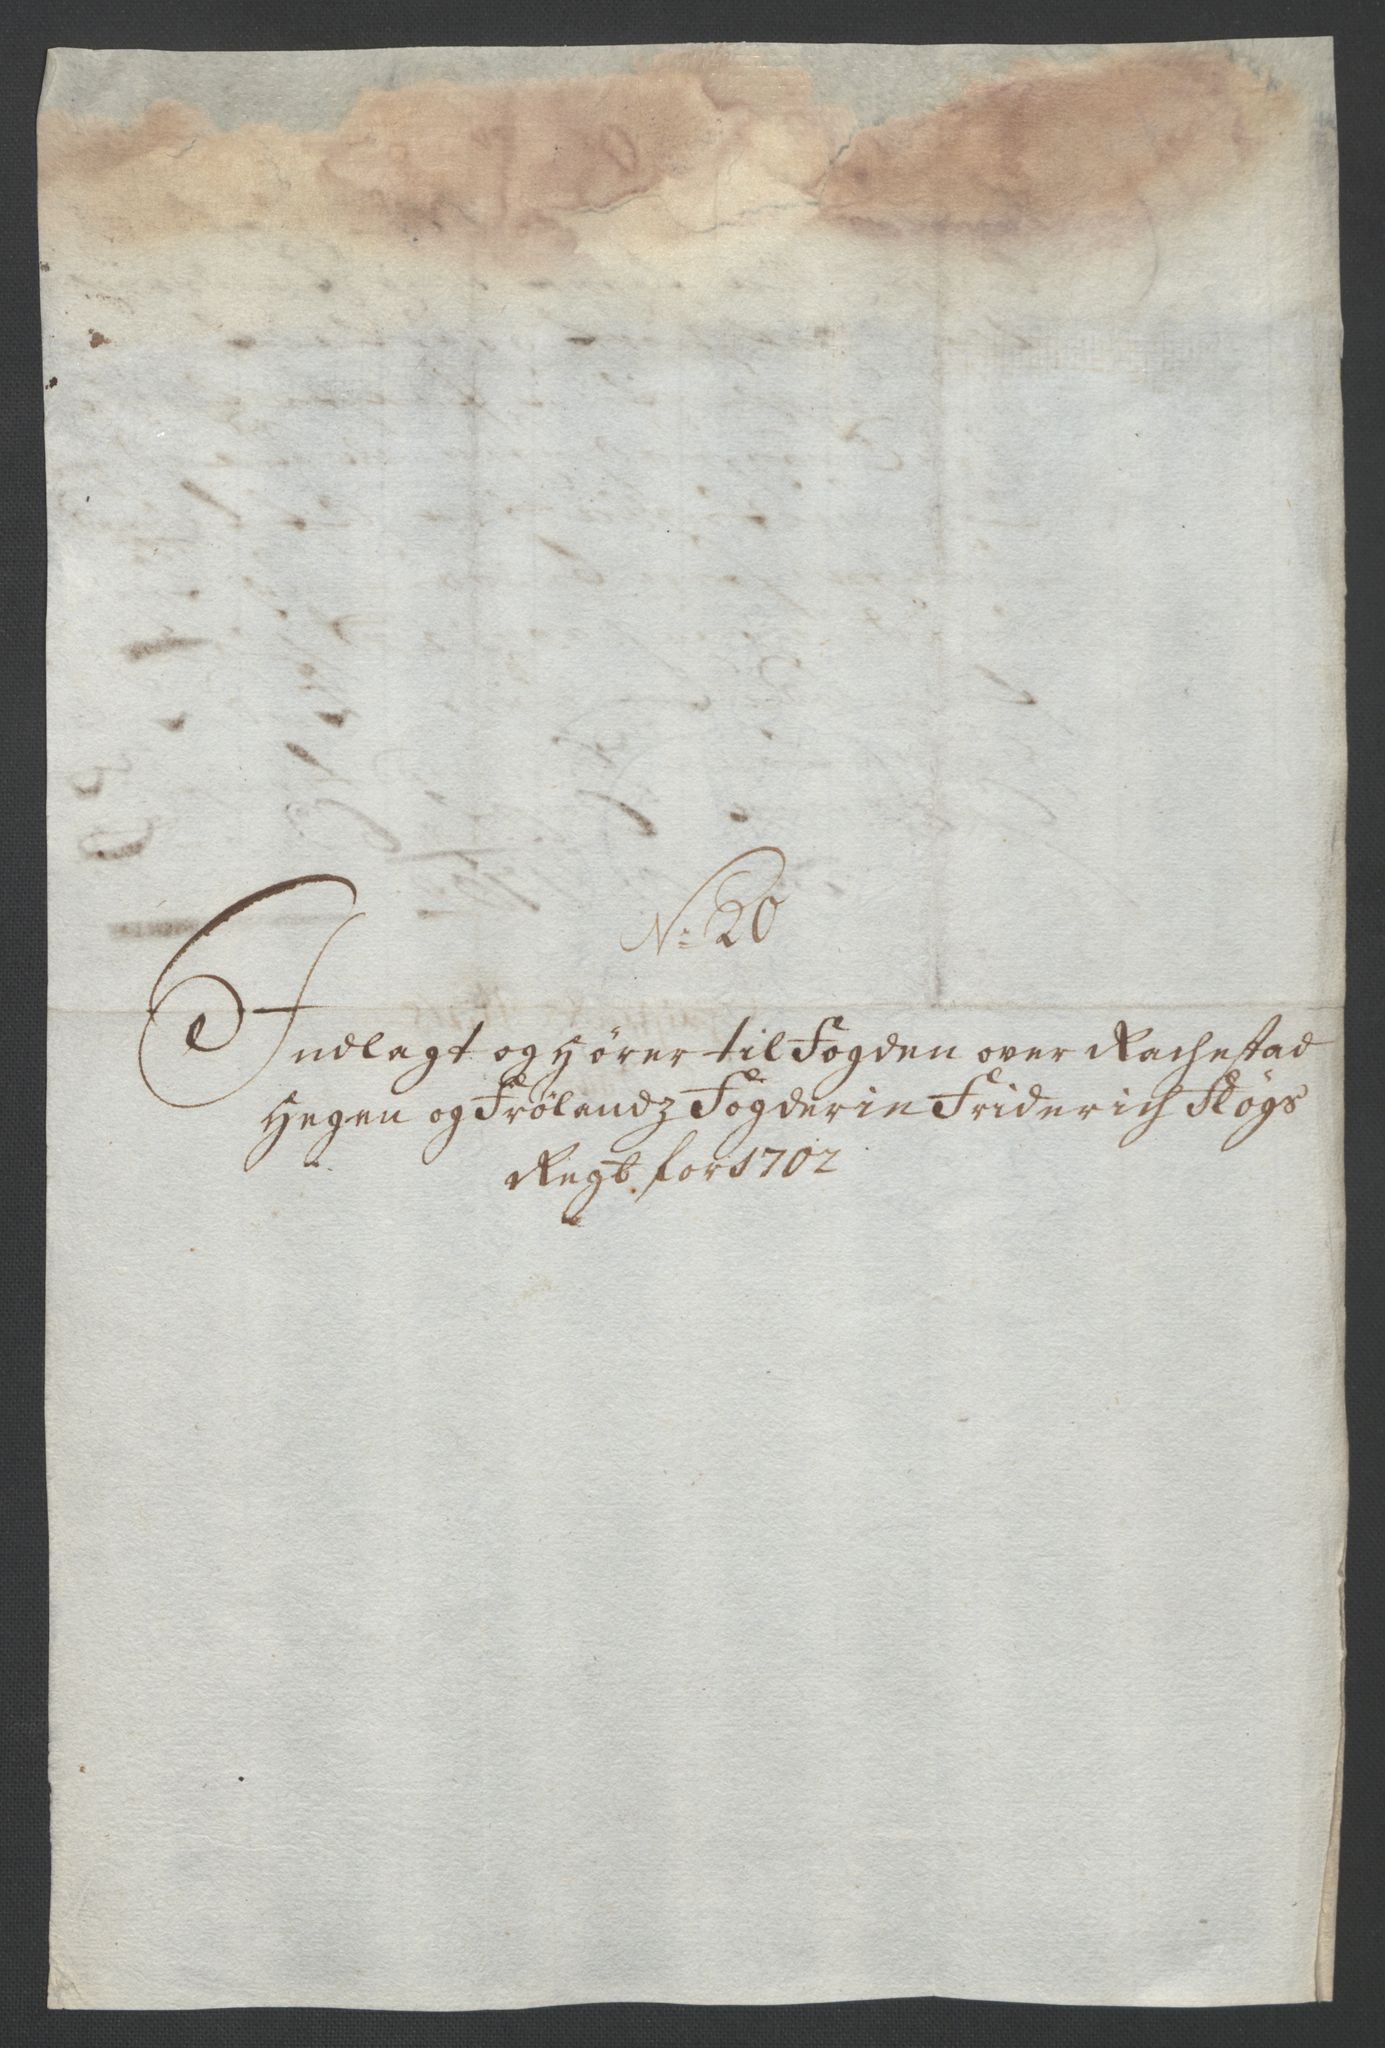 No: 20
Indlagt og hører til Fogden over Rachestad
Hegen og Frølandz Fogderie Friderich Fløgs
Regb for 1702